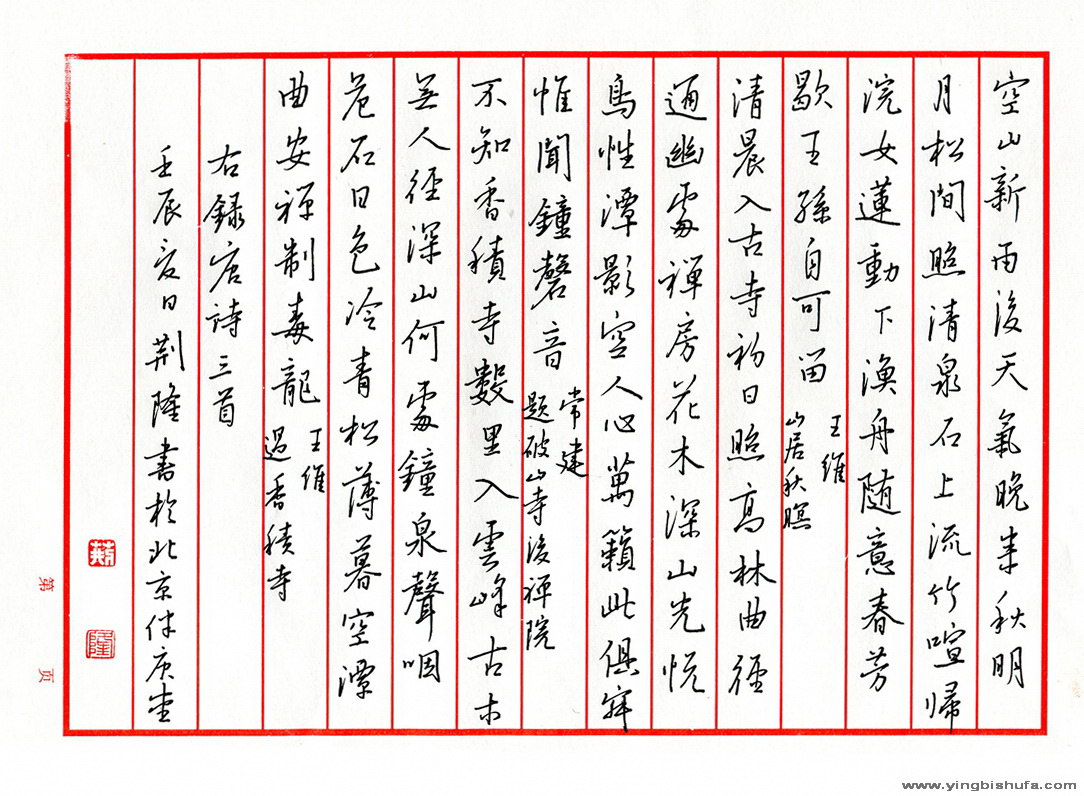 空山新雨後天氣晚来秋明
月松間照清泉石上流竹喧歸
浣女蓮動下漁舟随意春芳
歇王孫自可留
王維
山居秋暝
清晨入古寺初日照高林曲徑
通幽處禪房花木深山光悦
鳥性潭影空人心萬籟此俱寂
惟聞鐘磬音
常建
題破山寺後禅院
不知香積寺數里入雲峰古木
無人徑深山何處鐘泉聲咽
危石日色冷青松薄暮空潭
曲安禅制毒龍
王維
過香積寺
右録唐詩三首
壬辰夏日荆隆書於北京伴庚堂
荆
隆
第 页
www.yingbishufa.com